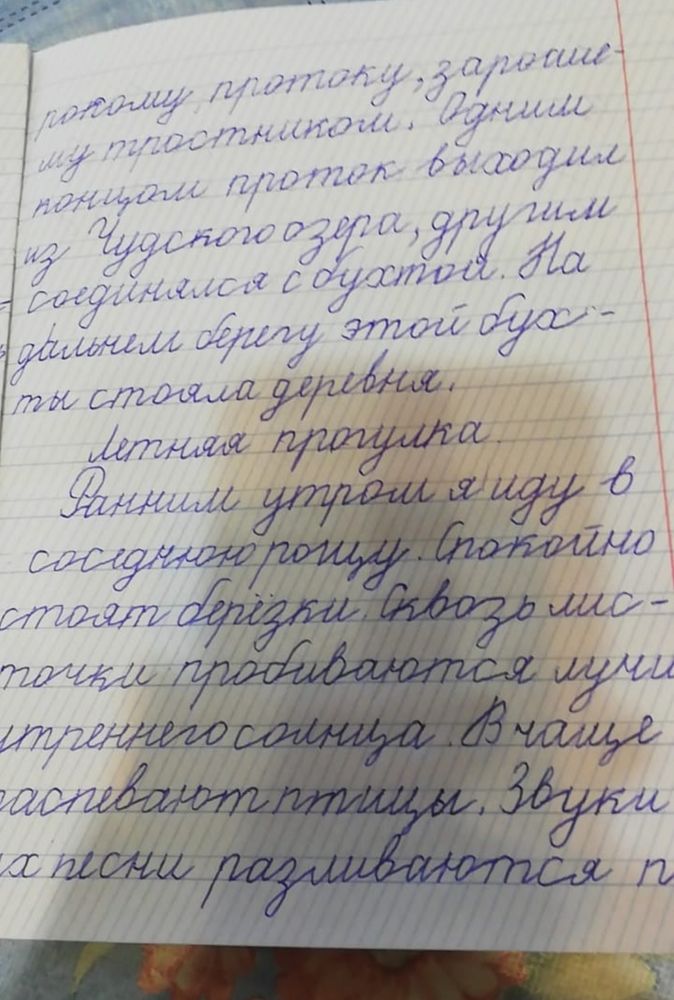 рокому протоку, заросше-
му тростником. Одним
концом проток выходил
из Чудского озера, другим
соединялся с бухтой. На
дальнем берегу этой бух-
ты стояла деревня.
Летняя прогулка.
Ранним утром я иду в
соседнюю рощу. Спокойно
стоят берёзки. Сквозь лис-
точки пробиваются лучи
утреннего солнца. В чаще
распевают птицы. Звуки
их песни разливаются п